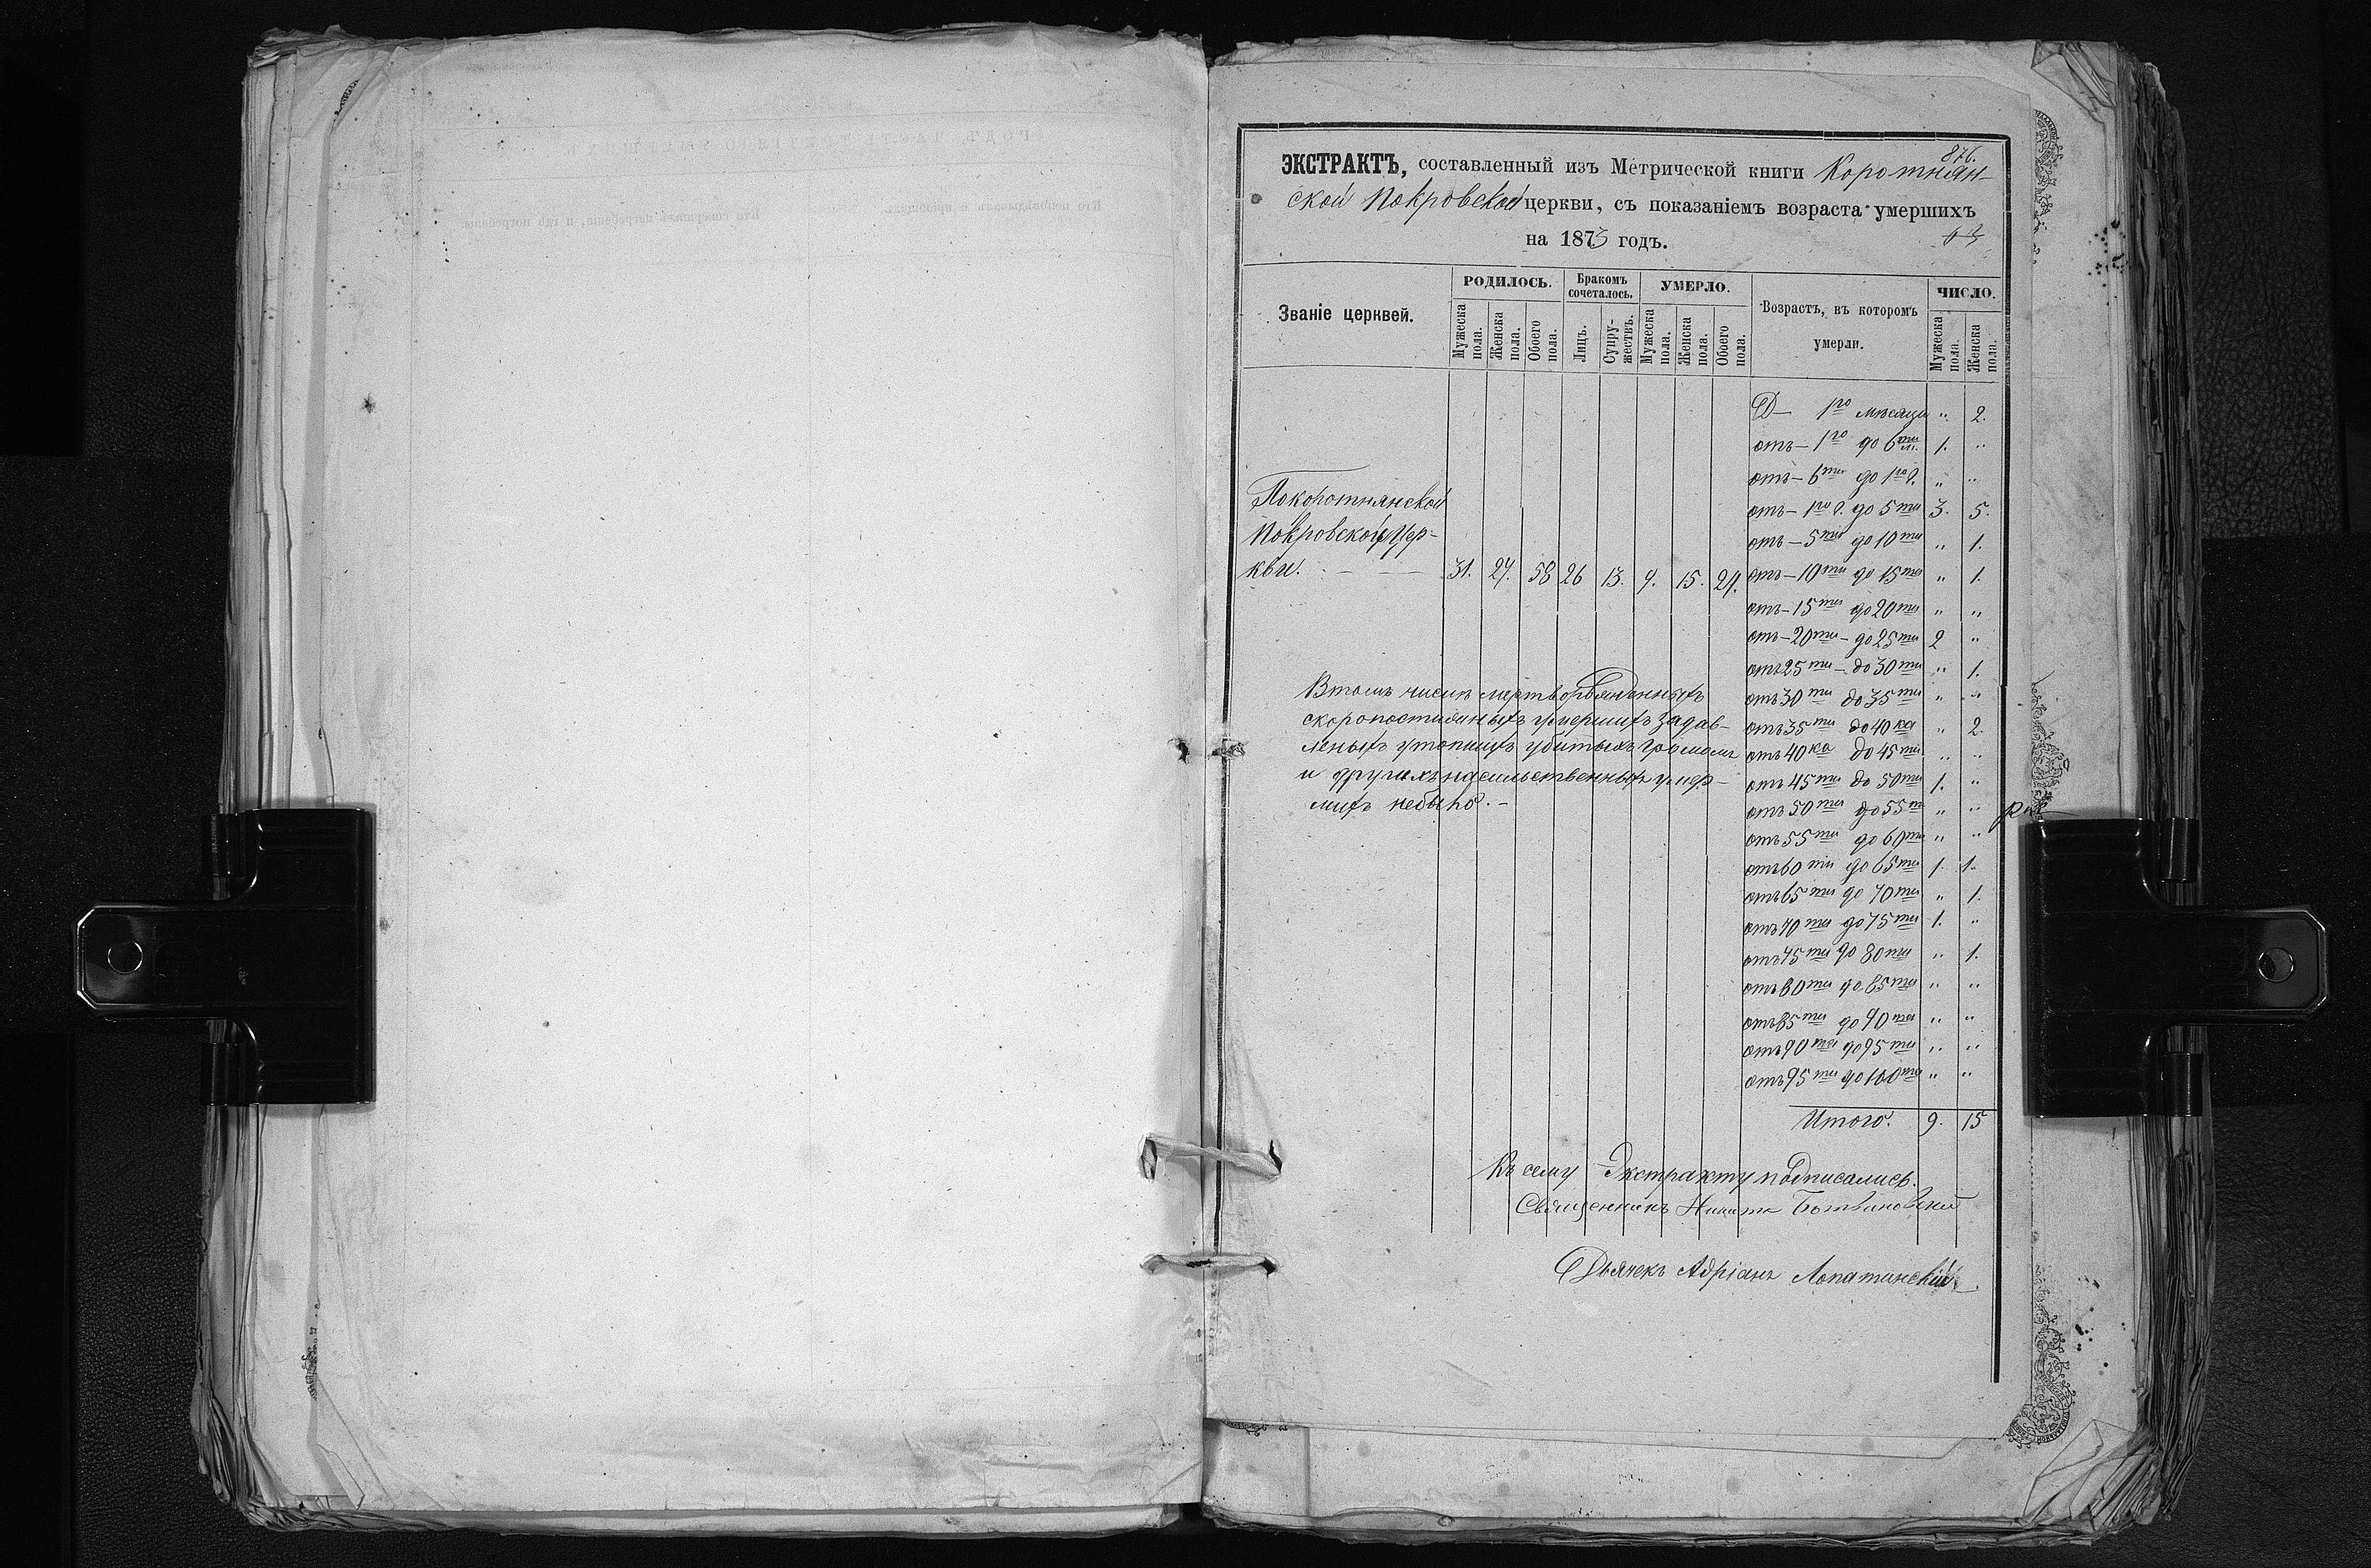 876.
ЭКСТРАКТЪ, составленный изъ Метрической книги Коротнян-
ской Покровской церкви, съ показаніемъ возраста умершихъ
на 1873 годъ.
Званіе церквей.
РОДИЛОСЬ.
Мужеска пола.
Женска пола.
Обоего пола.
Бракомъ сочеталось.
Лицъ.
Супружествъ.
УМЕРЛО.
Мужеска пола.
Женска пола.
Обоего пола.
Возрастъ, въ которомъ
умерли.
ЧИСЛО.
Мужеска пола.
Женска пола.
По Коротнянской
Покровской Цер-
кви. 31. 27. 58 26 13. 9. 15. 24.
До 1го мѣсяца „ 2.
отъ — 1го до 6ти м. 1. „
отъ — 6ти до 1го г. „ „
отъ — 1го г. до 5ти 3. 5.
отъ — 5ти до 10ти „ 1.
отъ — 10ти до 15ти „ 1.
отъ — 15ти до 20ти „ „
отъ — 20ти — до 25ти 2 „
отъ 25ти — до 30ти „ 1.
отъ 30ти до 35ти „ „
отъ 35ти до 40ка „ 2.
отъ 40ка до 45ти „ „
отъ 45ти до 50ти 1. „
отъ 50ти до 55ти „ „
отъ 55ти до 60ти „ „
отъ 60ти до 65ти 1. 1.
отъ 65ти до 70ти „ 1.
отъ 70ти до 75ти 1. „
отъ 75ти до 80ти „ 1.
отъ 80ти до 85ти „ „
отъ 85ти до 90та „ „
отъ 90та до 95ти „ „
отъ 95ти до 100та „ „
Итого. 9. 15
В томъ числѣ мертворожденныхъ
скоропостижныхъ умершихъ задав-
леныхъ утопшихъ убитыхъ громомъ
и другихъ насильственныхъ умер-
шихъ небыло. —
Къ сему Экстракту подписались.
Священникъ Никита Ботвиновскій
Дьячекъ Адріанъ Лопатинскій